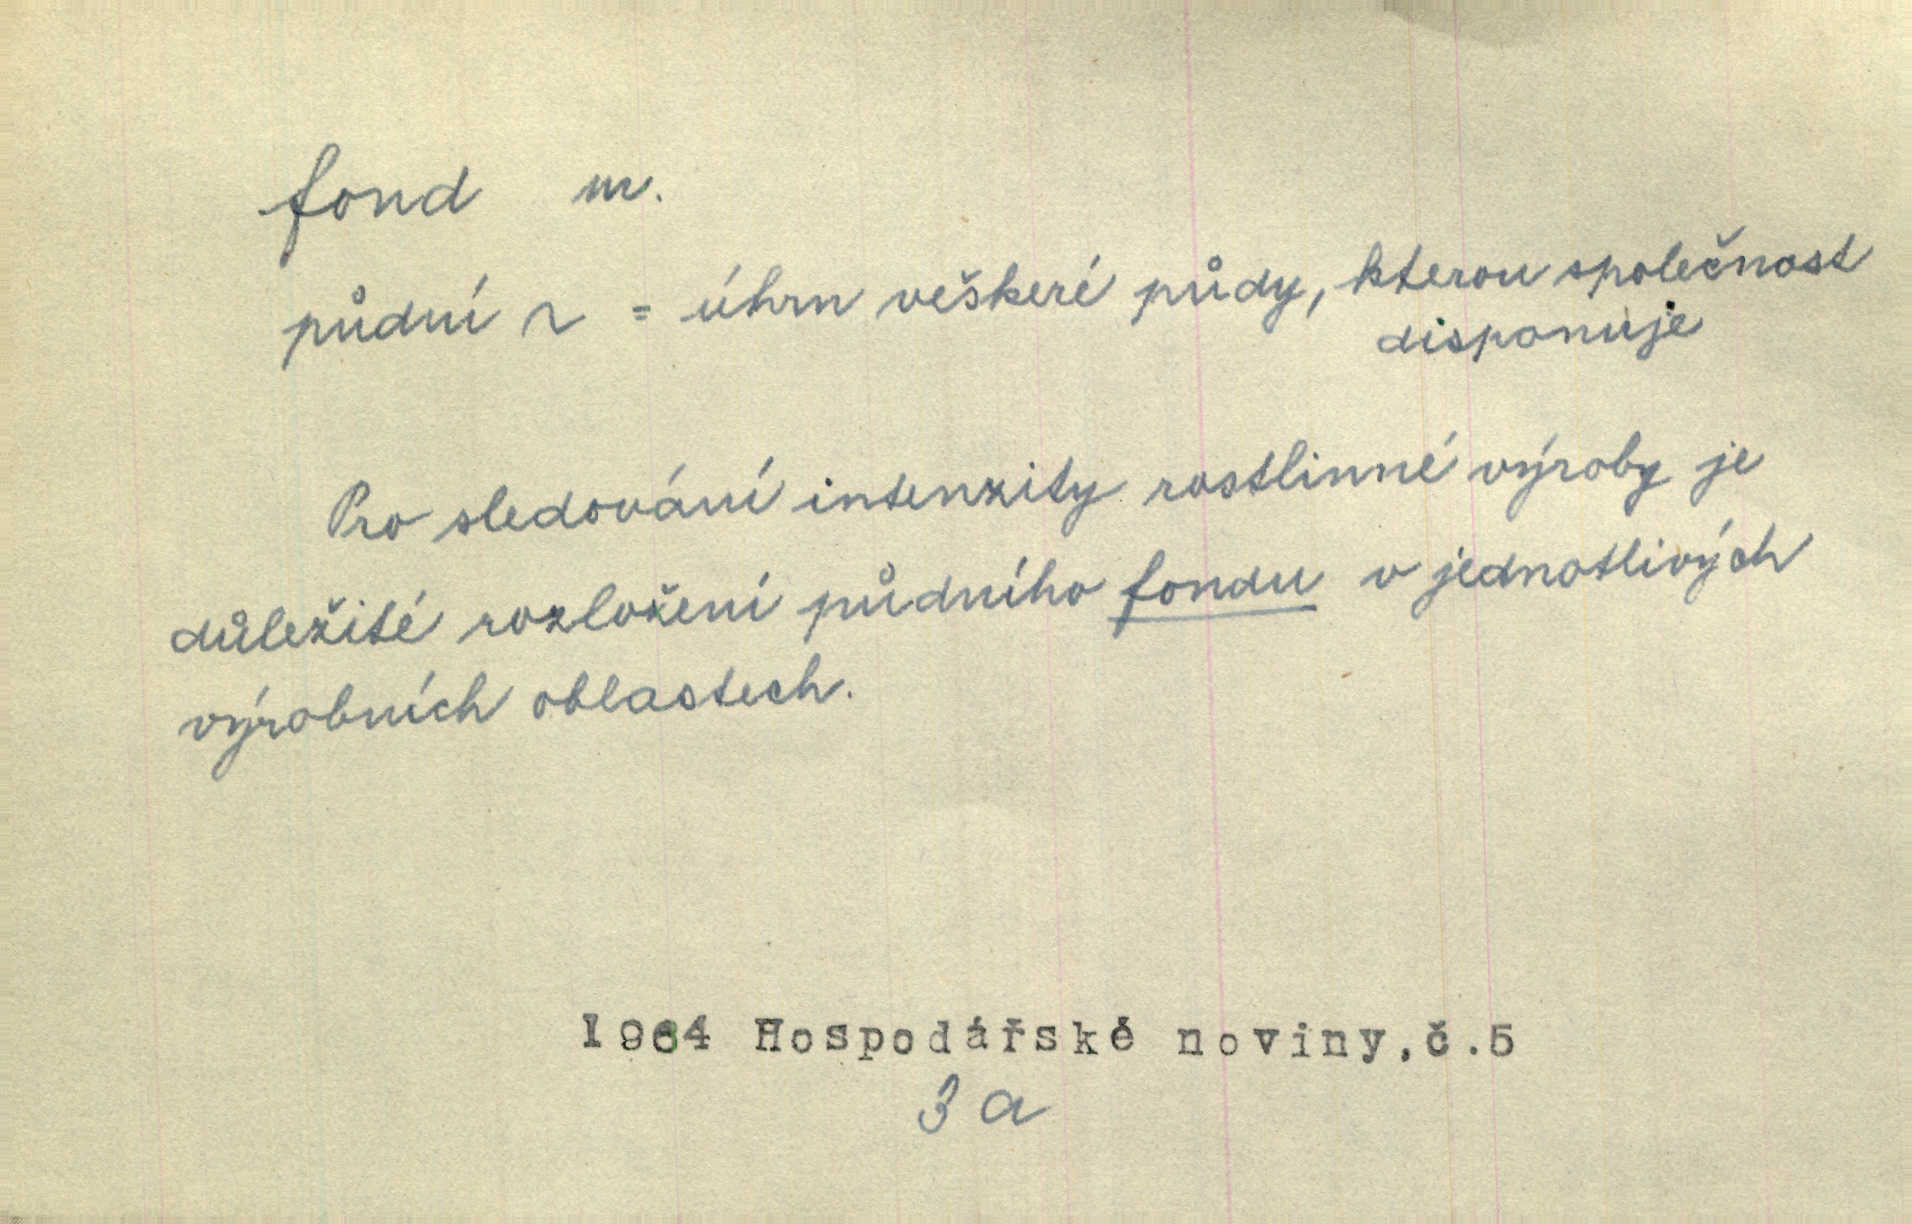 fond m.
půdní ~ = úhrn veškeré půdy, kterou společnost
disponuje
Pro sledování intenzity rostlinné výroby je
důležité rozložení půdního fondu v jednotlivých
výrobních oblastech.
1964 Hospodářské noviny,č.5
3 a